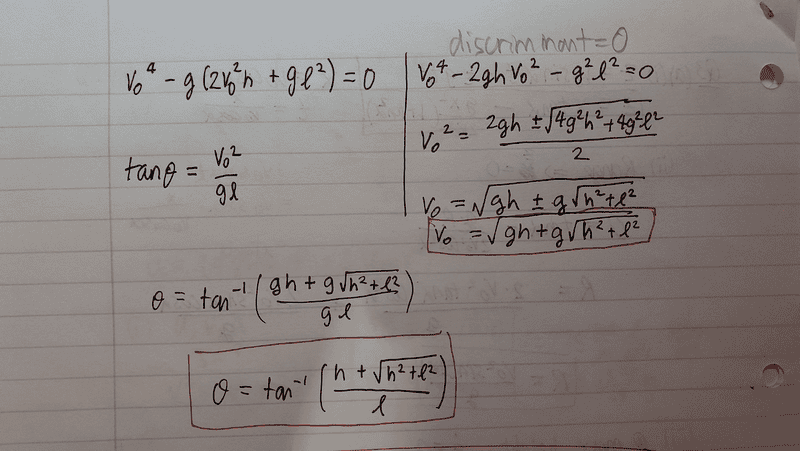 discriminant = 0
V₀⁴ - g (2V₀²h + gℓ²) = 0
tanθ = V₀²/gℓ
V₀⁴ - 2ghV₀² - g²ℓ² = 0
V₀² = (2gh ± √(4g²h² + 4g²ℓ²))/2
V₀ = √(gh ± g√(h² + ℓ²))
V₀ = √(gh + g√(h² + ℓ²))
θ = tan⁻¹((gh + g√(h² + ℓ²))/gℓ)
θ = tan⁻¹((h + √(h² + ℓ²))/ℓ)